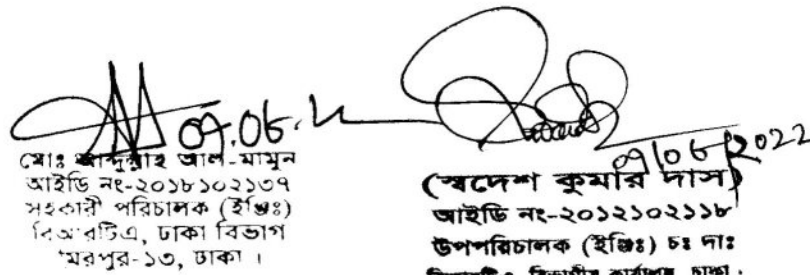 09.06.
মোঃ আব্দুল্লাহ আল-মামুন
আইডি নং-২০১৮১০২১৩৭
সহকারী পরিচালক (ইঞ্জিঃ)
বিআরটিএ, ঢাকা বিভাগ
মিরপুর-১৩, ঢাকা ।
09/06/2022
(স্বদেশ কুমার দাস)
আইডি নং-২০১২১০২১১৮
উপপরিচালক (ইঞ্জিঃ) চঃ দাঃ
বিআরটিএ, বিভাগীয় কার্যালয়, ঢাকা।